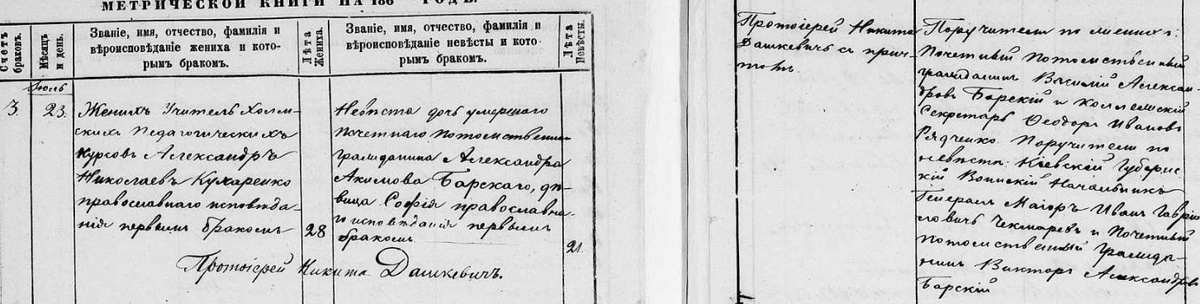 МЕТРИЧЕСКОЙ КНИГИ НА 186 ГОДЪ.
Счетъ браковъ.
Мѣсяцъ и день.
Званіе, имя, отчество, фамилія и
вѣроисповѣданіе жениха и кото-
рымъ бракомъ.
Лѣта Жениха.
Званіе, имя, отчество, фамилія и
вѣроисповѣданіе невѣсты и кото-
рымъ бракомъ.
Лѣта Невѣсты.
Іюль
3. 23.
Женихъ Учитель Холм-
скихъ Педагогическихъ
Курсовъ Александръ
Николаевъ Кухаренко
православнаго исповѣда-
нія первымъ бракомъ
28
Невѣста дочь умершаго
Почетнаго Потомственнаго
гражданина Александра
Акимова Барскаго, дѣ-
вица Софія православна-
го исповѣданія первымъ
бракомъ
21.
Протоіерей Никита Дашкевичъ.
Протоіерей Никита
Дашкевичъ съ прич-
томъ.
Поручители по женихѣ:
Почетный Потомственный
гражданинъ Василій Алексан-
дровъ Барскій и Коллежскій
Секретарь Ѳеодоръ Ивановъ
Рядченко Поручители по
невѣстѣ: Кіевскій Губернс-
кій Воинскій Начальникъ
Генералъ Маіоръ Иванъ Гаврі-
ловичъ Чекмаревъ и Почетный
потомственный гражда-
нинъ Викторъ Александровъ
Барскій